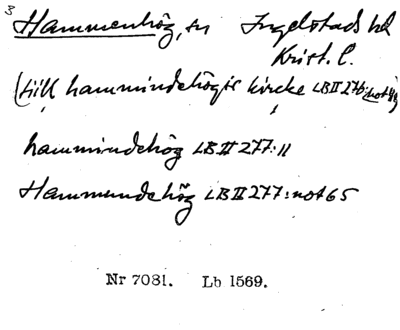 3
Hammenhög, sn Ingelstads hd
Krist. l.
(till hammindehögis kircke LB II 276: not 48)
hammindehög LB II 277: 11
Hammundehög LB II 277: not 65
Nr 7081. Lb 1569.